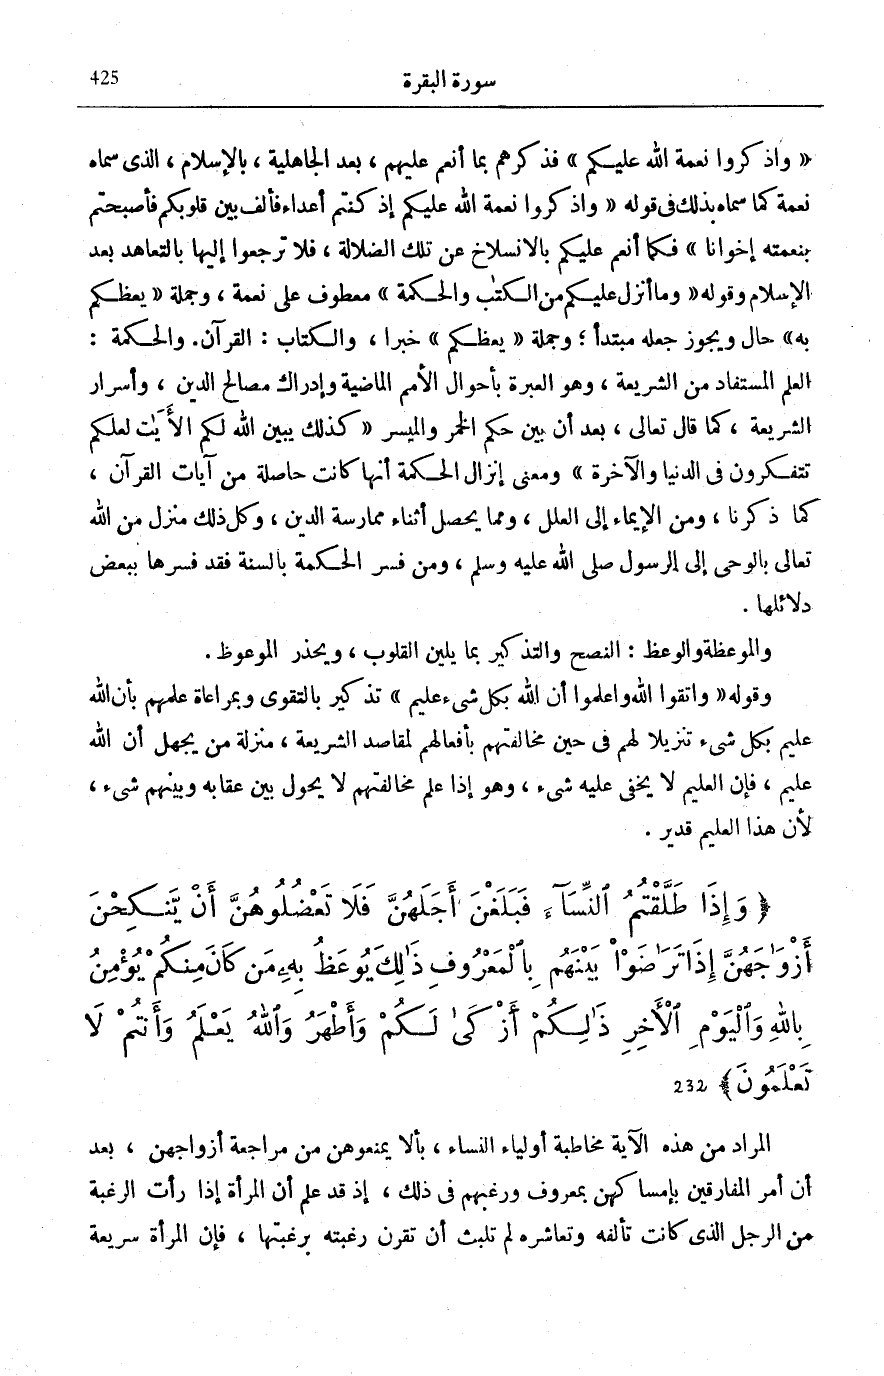 سورة البقرة 425
« واذكروا نعمة الله عليكم » فذكرهم بما أنعم عليهم ، بعد الجاهلية ، بالإسلام ، الذى سماه
نعمة كما سماه بذلك فى قوله « واذكروا نعمة الله عليكم إذ كنتم أعداء فألف بين قلوبكم فأصبحتم
بنعمته إخوانا » فكما أنعم عليكم بالانسلاخ عن تلك الضلالة ، فلا ترجعوا إليها بالتعاهد بعد
الإسلام وقوله « وما أنزل عليكم من الكتٰب والحكمة » معطوف على نعمة ، وجملة « يعظكم
به » حال ويجوز جعله مبتدأ ؛ وجملة « يعظكم » خبرا ، والكتاب : القرآن. والحكمة :
العلم المستفاد من الشريعة ، وهو العبرة بأحوال الأمم الماضية وإدراك مصالح الدين ، وأسرار
الشريعة ، كما قال تعالى ، بعد أن بين حكم الخمر والميسر « كذلك يبين الله لكم الأَيَٰت لعلكم
تتفكرون فى الدنيا والآخرة » ومعنى إنزال الحكمة أنها كانت حاصلة من آيات القرآن ،
كما ذكرنا ، ومن الإيماء إلى العلل ، ومما يحصل أثناء ممارسة الدين ، وكل ذلك منزل من الله
تعالى بالوحى إلى الرسول صلى الله عليه وسلم ، ومن فسر الحكمة بالسنة فقد فسرها ببعض
دلائلها .
والموعظة والوعظ : النصح والتذكير بما يلين القلوب ، ويحذر الموعوظ .
وقوله « واتقوا الله واعلموا أن الله بكل شىء عليم » تذكير بالتقوى وبمراعاة علمهم بأن الله
عليم بكل شىء تنزيلا لهم فى حين مخالفتهم بأفعالهم لمقاصد الشريعة ، منزلة من يجهل أن الله
عليم ، فإن العليم لا يخفى عليه شىء ، وهو إذا علم مخالفتهم لا يحول بين عقابه وبينهم شىء ،
لأن هذا العليم قدير .
﴿ وَإِذَا طَلَّقْتُمُ ٱلنِّسَآءَ فَبَلَغْنَ أَجَلَهُنَّ فَلَا تَعْضُلُوهُنَّ أَنْ يَّنكِحْنَ
أَزْوَٰجَهُنَّ إِذَا تَرَٰضَوْا۟ بَيْنَهُم بِٱلْمَعْرُوفِ ذَٰلِكَ يُوعَظُ بِهِۦ مَن كَانَ مِنكُمْ يُؤْمِنُ
بِاللهِ وَٱلْيَوْمِ ٱلْأَخِرِ ذَٰلِكُمْ أَزْكَىٰ لَكُمْ وَأَطْهَرُ وَٱللهُ يَعْلَمُ وَأَنتُمْ لَا
تَعْلَمُونَ ﴾ 232
المراد من هذه الآية مخاطبة أولياء النساء ، بألا يمنعوهن من مراجعة أزواجهن ، بعد
أن أمر المفارقين بإمساكهن بمعروف ورغبهم فى ذلك ، إذ قد علم أن المرأة إذا رأت الرغبة
من الرجل الذى كانت تألفه وتعاشره لم تلبث أن تقرن رغبته برغبتها ، فإن المرأة سريعة